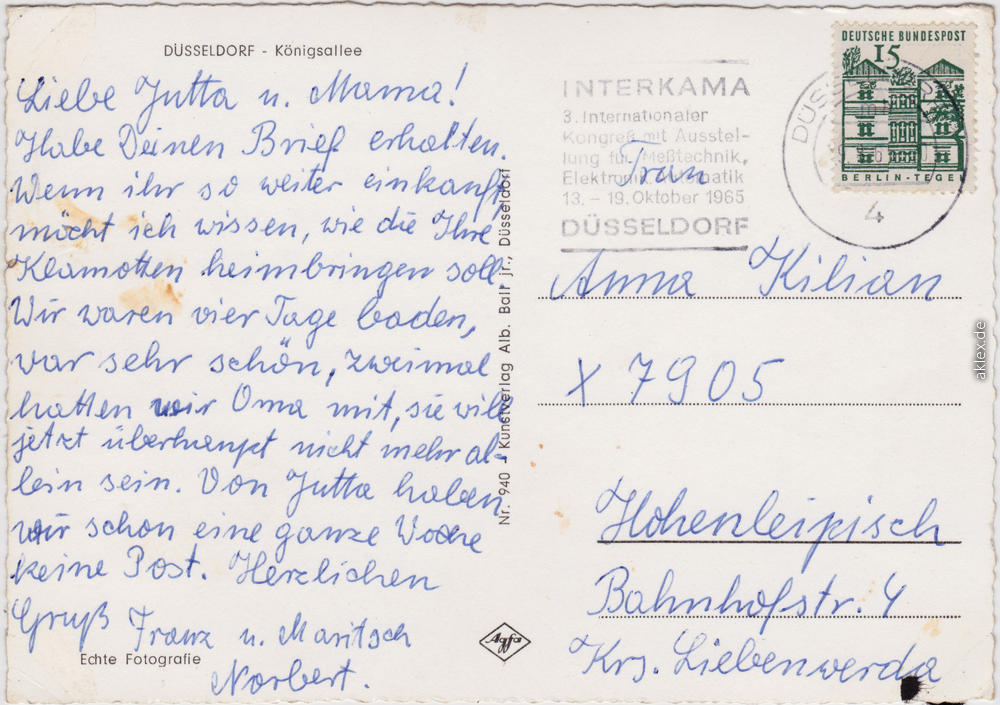 DÜSSELDORF - Königsallee
Liebe Jutta u. Mama!
Habe Deinen Brief erhalten.
Wenn ihr so weiter einkauft,
möcht ich wissen, wie die Ihre
Klamotten heimbringen soll.
Wir waren vier Tage baden,
war sehr schön, zweimal
hatten wir Oma mit, sie will
jetzt überhaupt nicht mehr al-
lein sein. Von Jutta haben
wir schon eine ganze Woche
keine Post. Herzlichen
Gruß Franz u. Maritsch
Norbert.
Echte Fotografie
Nr. 940 - Kunstverlag Alb. Balf jr., Düsseldorf
Agfa
INTERKAMA
3. Internationaler
Kongreß mit Ausstel-
lung für Meßtechnik,
Elektronik, Automatik
13. – 19. Oktober 1965
DÜSSELDORF
DEUTSCHE BUNDESPOST
15
BERLIN-TEGEL
4
Frau
Anna Kilian
X 7905
Hohenleipisch
Bahnhofstr. 4
Krs. Liebenwerda
aklex.de